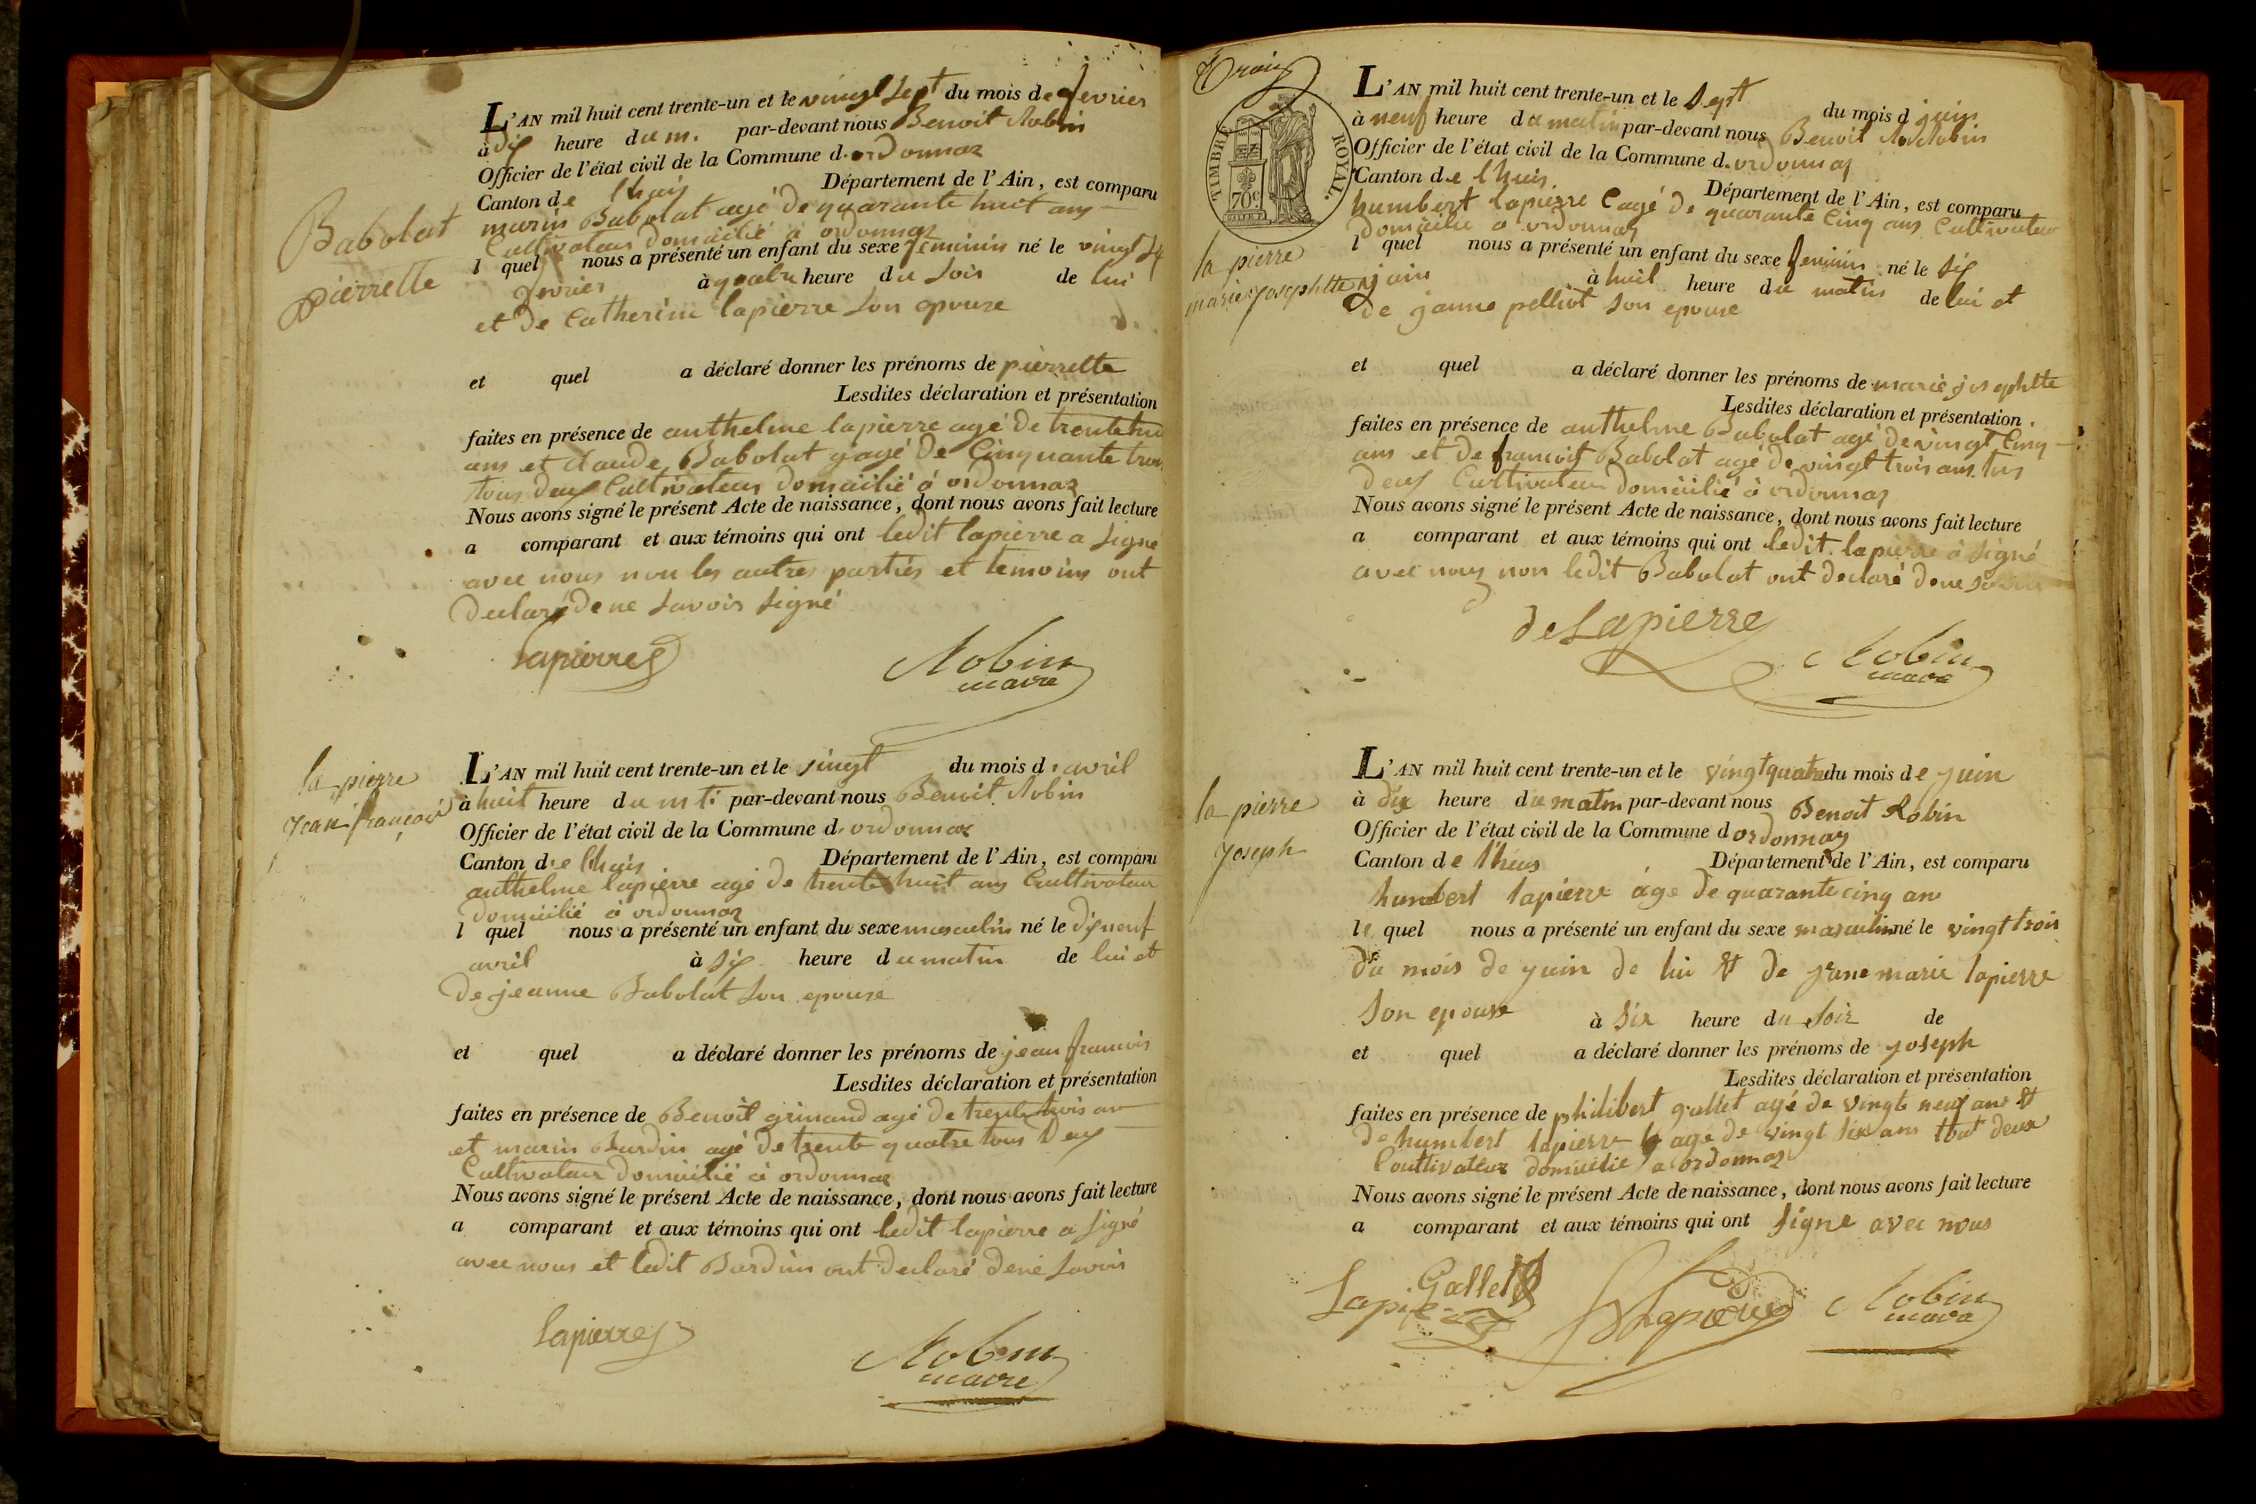 Babolat
pierrette
L'AN mil huit cent trente-un et le vingt sept du mois de fevrier
à dix heure du m. par-devant nous Benoit Robin
Officier de l'état civil de la Commune d. ordonnaz
Canton de lhuis Département de l'Ain, est comparu
marin Babolat agé de quarante huit ans
Cultivateur domicilié à ordonnaz
l quel nous a présenté un enfant du sexe feminin né le vingt
fevrier à quatre heure du soir de lui
et de Catherine lapierre son epouse
et quel a déclaré donner les prénoms de pierrette
Lesdites déclaration et présentation
faites en présence de anthelme lapierre agé de trente
ans et claude Babolat agé de Cinquante trois
tous deux Cultivateur domicilié à ordonnaz
Nous avons signé le présent Acte de naissance, dont nous avons fait lecture
a comparant et aux témoins qui ont ledit lapierre a signé
avec nous non les autres parties et temoins ont
declaré de ne savoir signé
Lapierre
Robin
maire
la pierre
jean françois
L'AN mil huit cent trente-un et le vingt du mois d. avril
à huit heure du mti par-devant nous Benoit Robin
Officier de l'état civil de la Commune d. ordonnaz
Canton de lhuis Département de l'Ain, est comparu
anthelme lapierre agé de trente huit ans Cultivateur
domicilié à ordonnaz
l quel nous a présenté un enfant du sexe masculin né le dixneuf
avril à six heure du matin de lui et
de jeanne Babolat son epouse
et quel a déclaré donner les prénoms de jean francois
Lesdites déclaration et présentation
faites en présence de Benoit grinand agé de trente trois an
et marin Burdin agé de trente quatre tous deux
Cultivateur domicilié à ordonnaz
Nous avons signé le présent Acte de naissance, dont nous avons fait lecture
a comparant et aux témoins qui ont ledit lapierre a signé
avec nous et ledit Burdin ont declaré de ne savoir
Lapierre
Robin
maire
trois
TIMBRE ROYAL.
70c
la pierre
marie josephtte
L'AN mil huit cent trente-un et le sept du mois d juin
à neuf heure du matin par-devant nous Benoit Robin
Officier de l'état civil de la Commune d. ordonnaz
Canton de lhuis Département de l'Ain, est comparu
humbert lapierre agé de quarante Cinq ans Cultivateur
domicilié a ordonnaz
l quel nous a présenté un enfant du sexe feminin né le six
juin à huit heure du matin de lui et
de janne pelliot son epouse
et quel a déclaré donner les prénoms de marie josephtte
Lesdites déclaration et présentation
faites en présence de anthelme Babolat agé de vingt Cinq
ans et de francois Babolat agé de vingt trois ans tous
deux Cultivateur domicilié à ordonnaz
Nous avons signé le présent Acte de naissance, dont nous avons fait lecture
a comparant et aux témoins qui ont ledit lapierre a signé
avec nous non ledit Babolat ont declaré de ne
de Lapierre
Robin
maire
la pierre
joseph
L'AN mil huit cent trente-un et le vingt quatre du mois de juin
à dix heure du matin par-devant nous Benoit Robin
Officier de l'état civil de la Commune d ordonnaz
Canton de l'hius Département de l'Ain, est comparu
humbert lapierre âge de quarante cinq ans
le quel nous a présenté un enfant du sexe masculin né le vingt trois
du mois de juin de lui & de jeane marie lapierre
son epouse à six heure du soir de
et quel a déclaré donner les prénoms de joseph
Lesdites déclaration et présentation
faites en présence de philibert gallet agé de vingt neuf ans &
de humbert lapierre agé de vingt six ans tout deux
Coultivateur domicilie a ordonnaz
Nous avons signé le présent Acte de naissance, dont nous avons fait lecture
a comparant et aux témoins qui ont signe avec nous
Gallet
Lapierre
hLapierre
Robin
maire